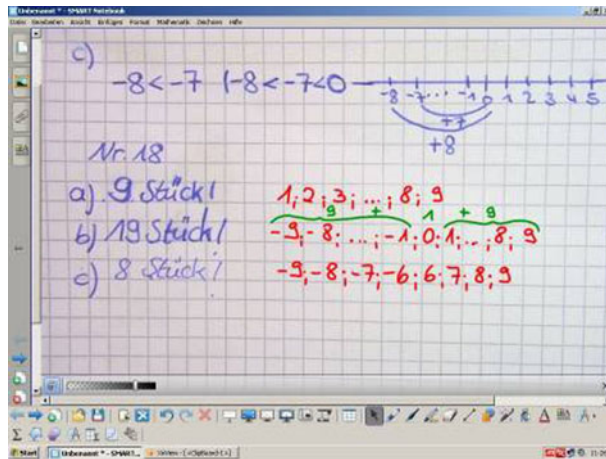 Unbenannt * - SMART Notebook
Datei Bearbeiten Ansicht Einfügen Format Mathematik Zeichnen Hilfe
c)
-8 < -7 | -8 < -7 < 0
-8 -7 ... -1 0 1 2 3 4 5
+7
+8
Nr. 18
a) 9 Stück! 1; 2; 3; ...; 8; 9
9 + 1 + 9
b) 19 Stück! -9; -8; ...; -1; 0; 1; ...; 8; 9
c) 8 Stück! -9; -8; -7; -6; 6; 7; 8; 9
Start Unbenannt * - SMART...